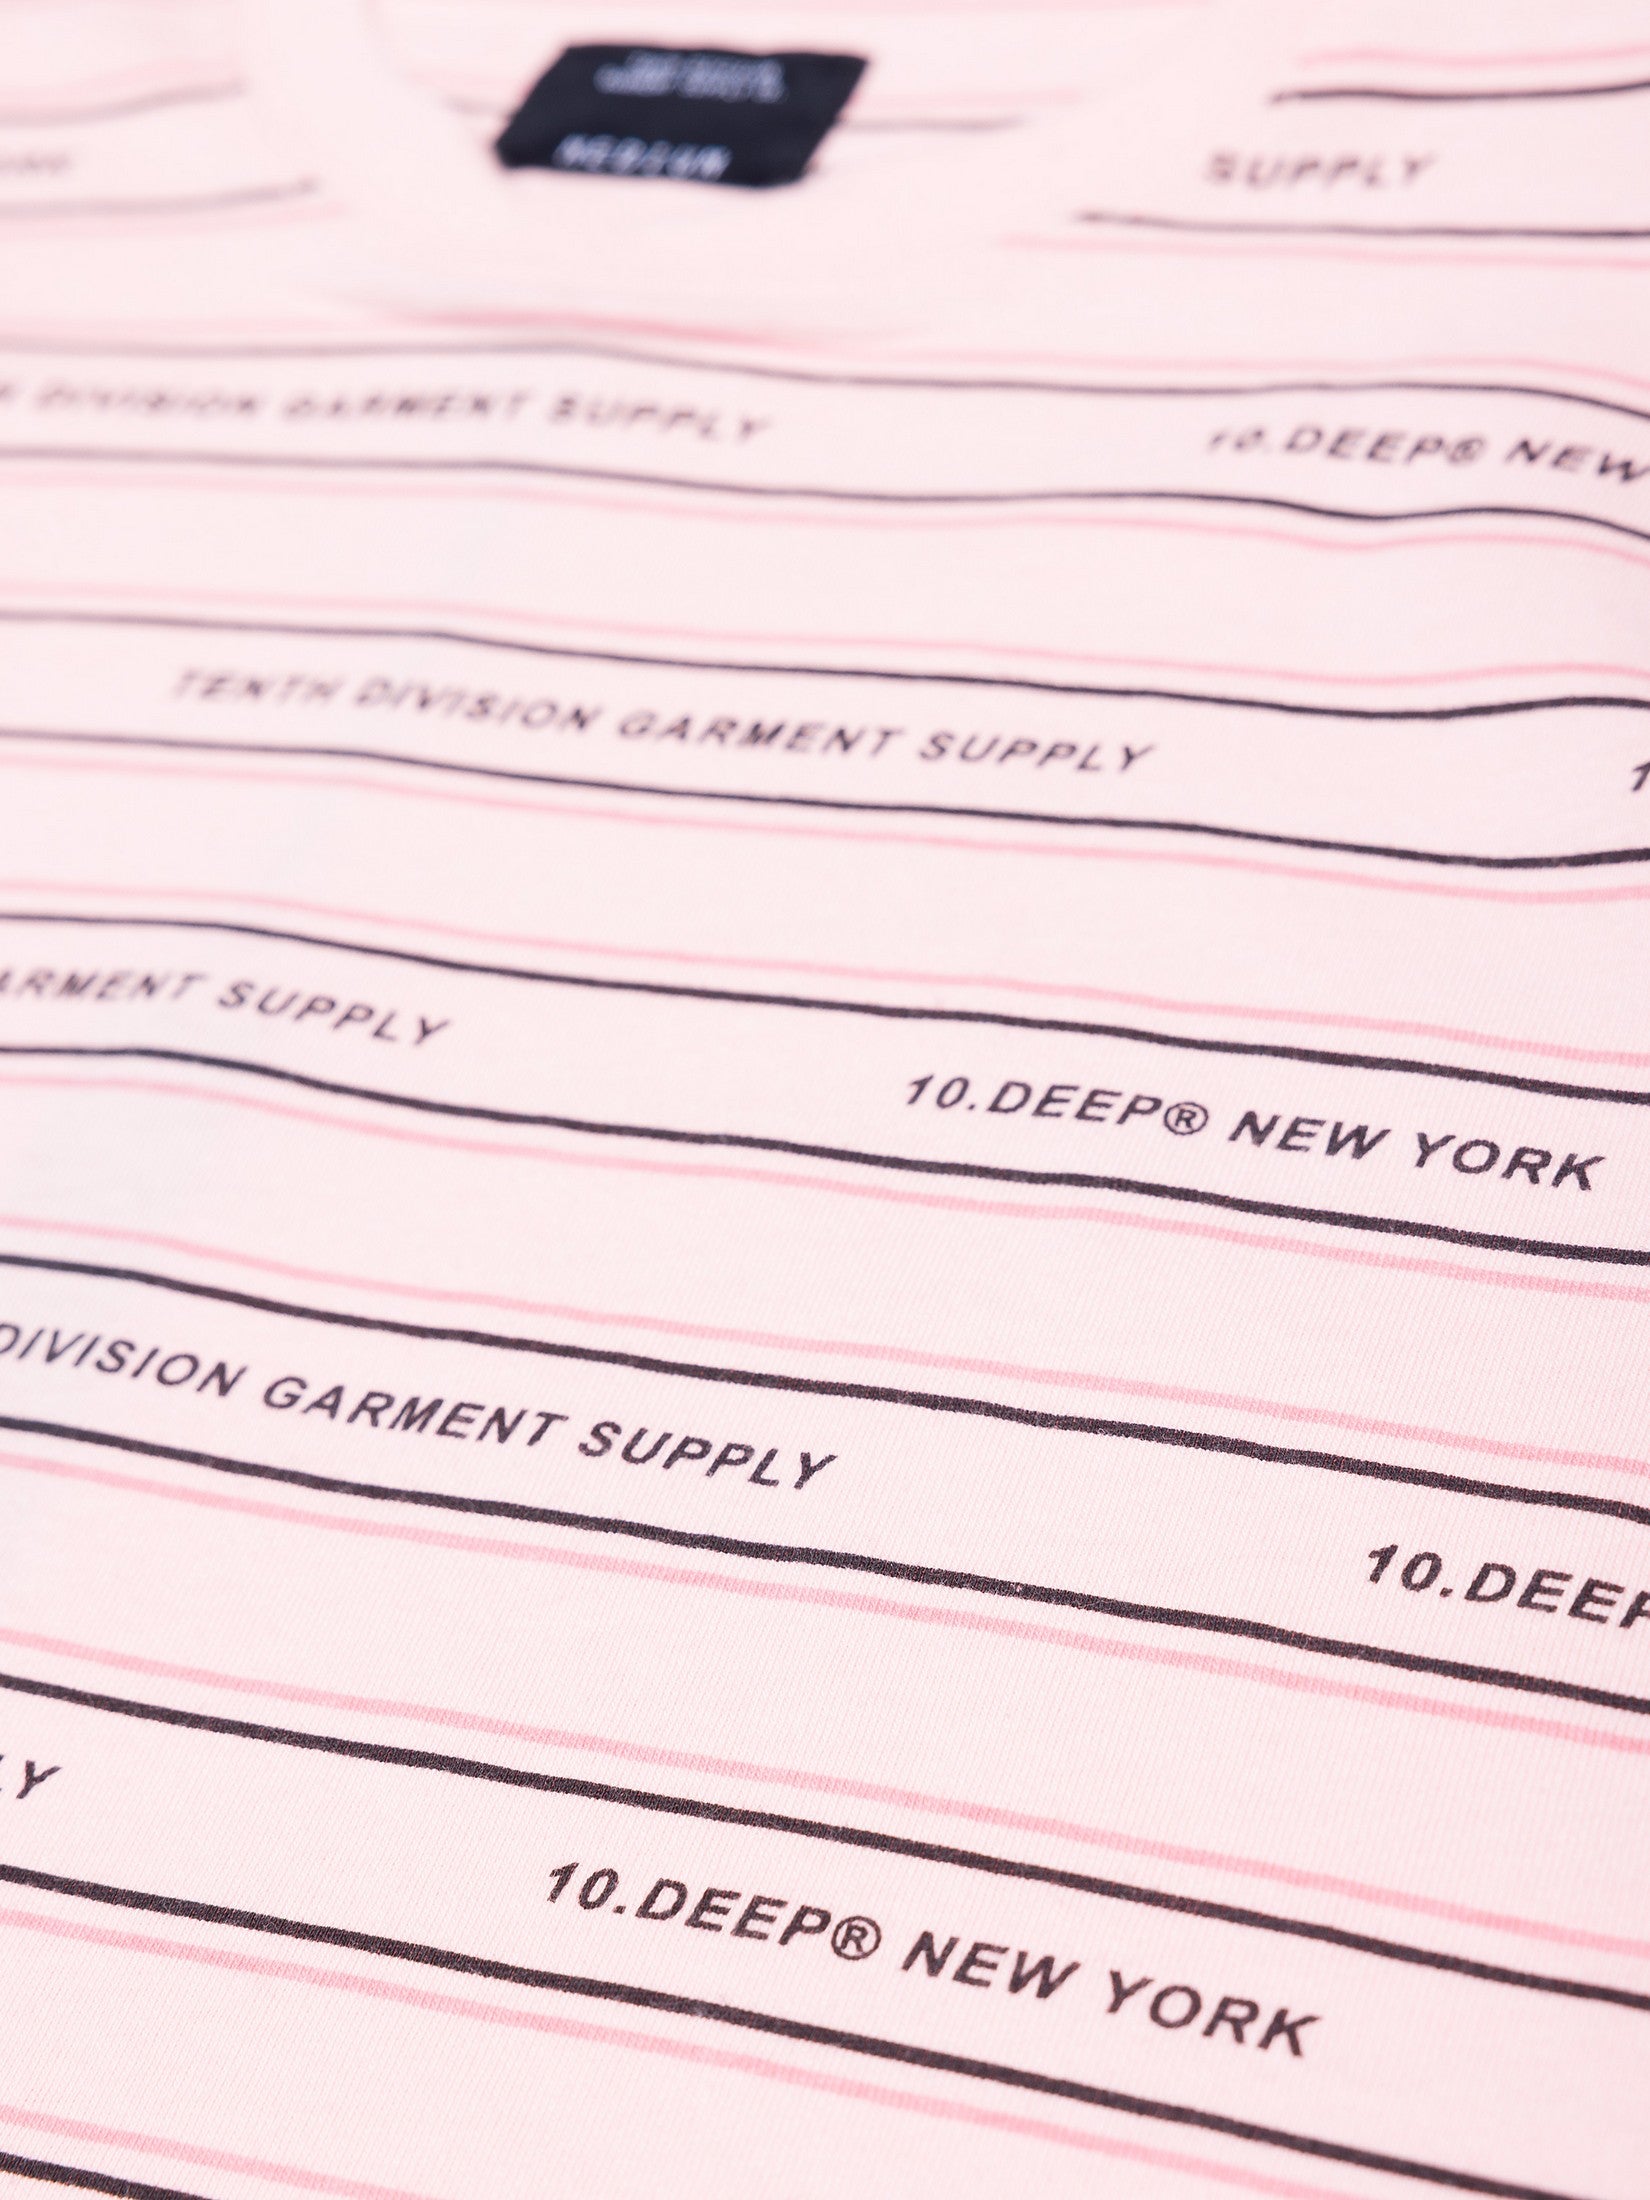 MEDIUM
SUPPLY
DIVISION GARMENT SUPPLY 10.DEEP® NEW
TENTH DIVISION GARMENT SUPPLY 1
ARMENT SUPPLY 10.DEEP® NEW YORK
DIVISION GARMENT SUPPLY 10.DEEP
LY 10.DEEP® NEW YORK